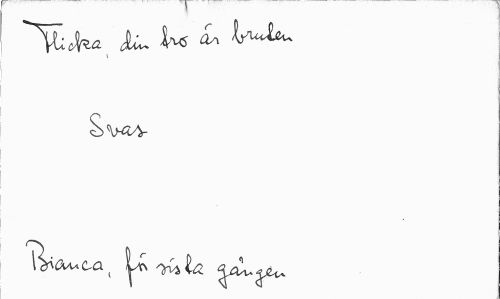 Flicka, din tro är bruten
Svas
Bianca, för sista gången